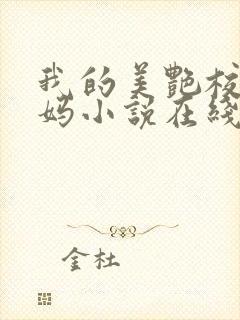 我的美艷校
妈小説在綫
金杜